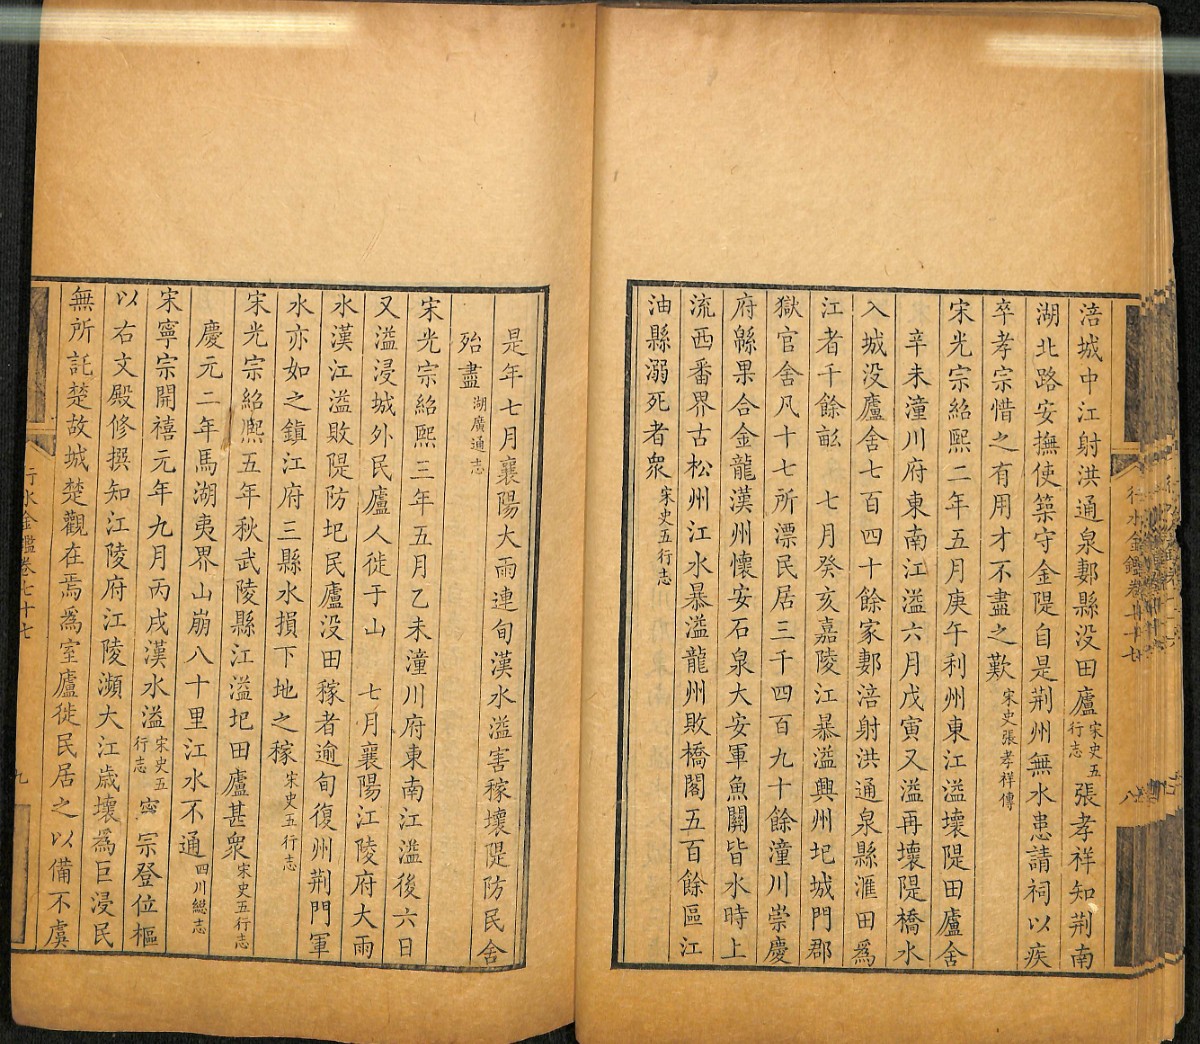 涪城中江射洪通泉郪縣没田廬宋史五行志張孝祥知荆南
湖北路安撫使築守金隄自是荆州無水患請祠以疾
卒孝宗惜之有用才不盡之歎宋史張孝祥傳
宋光宗紹熙二年五月庚午利州東江溢壞隄田廬舍
辛未潼川府東南江溢六月戊寅又溢再壞隄橋水
入城没廬舍七百四十餘家郪涪射洪通泉縣滙田爲
江者千餘畝 七月癸亥嘉陵江暴溢興州圮城門郡
獄官舍凡十七所漂民居三千四百九十餘潼川崇慶
府緜果合金龍漢州懷安石泉大安軍魚關皆水時上
流西番界古松州江水暴溢龍州敗橋閣五百餘區江
油縣溺死者衆宋史五行志
是年七月襄陽大雨連旬漢水溢害稼壞隄防民舍
殆盡湖廣通志
宋光宗紹熙三年五月乙未潼川府東南江溢後六日
又溢浸城外民廬人徙于山 七月襄陽江陵府大雨
水漢江溢敗隄防圮民廬没田稼者逾旬復州荆門軍
水亦如之鎮江府三縣水損下地之稼宋史五行志
宋光宗紹熙五年秋武陵縣江溢圮田廬甚衆宋史五行志
慶元二年馬湖夷界山崩八十里江水不通四川總志
宋寧宗開禧元年九月丙戌漢水溢宋史五行志寧宗登位樞
以右文殿修撰知江陵府江陵瀕大江歲壞爲巨浸民
無所託楚故城楚觀在焉爲室廬徙民居之以備不虞
行水金鑑卷七十七
九